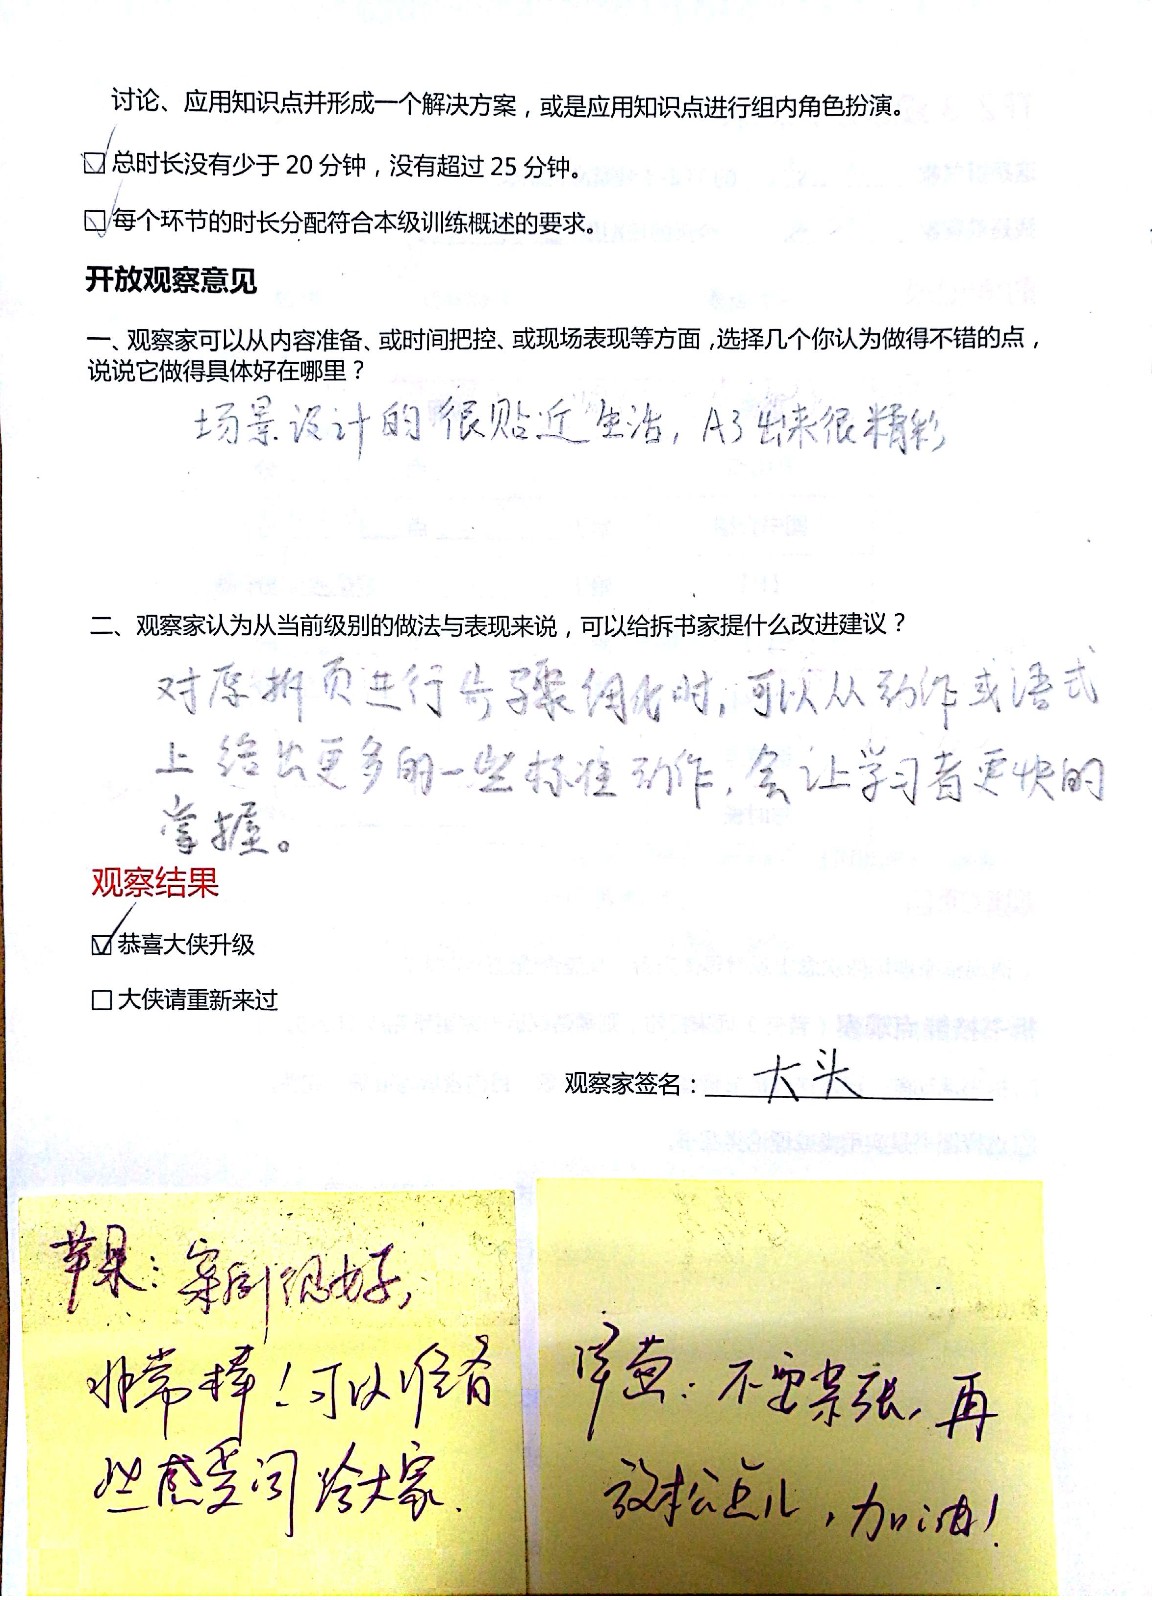 讨论、应用知识点并形成一个解决方案，或是应用知识点进行组内角色扮演。
☑总时长没有少于20分钟，没有超过25分钟。
☑每个环节的时长分配符合本级训练概述的要求。
开放观察意见
一、观察家可以从内容准备、或时间把控、或现场表现等方面，选择几个你认为做得不错的点，
说说它做得具体好在哪里？
场景设计的很贴近生活，A3出来很精彩
二、观察家认为从当前级别的做法与表现来说，可以给拆书家提什么改进建议？
对原拆页进行步骤细化时，可以从动作或语式
上给出更多的一些标准动作，会让学习者更快的
掌握。
观察结果
☑恭喜大侠升级
☐大侠请重新来过
观察家签名：大头
苹果：案例很好，
非常棒！可以准备
些感受词给大家.
不要紧张，再
放松点儿，加油！